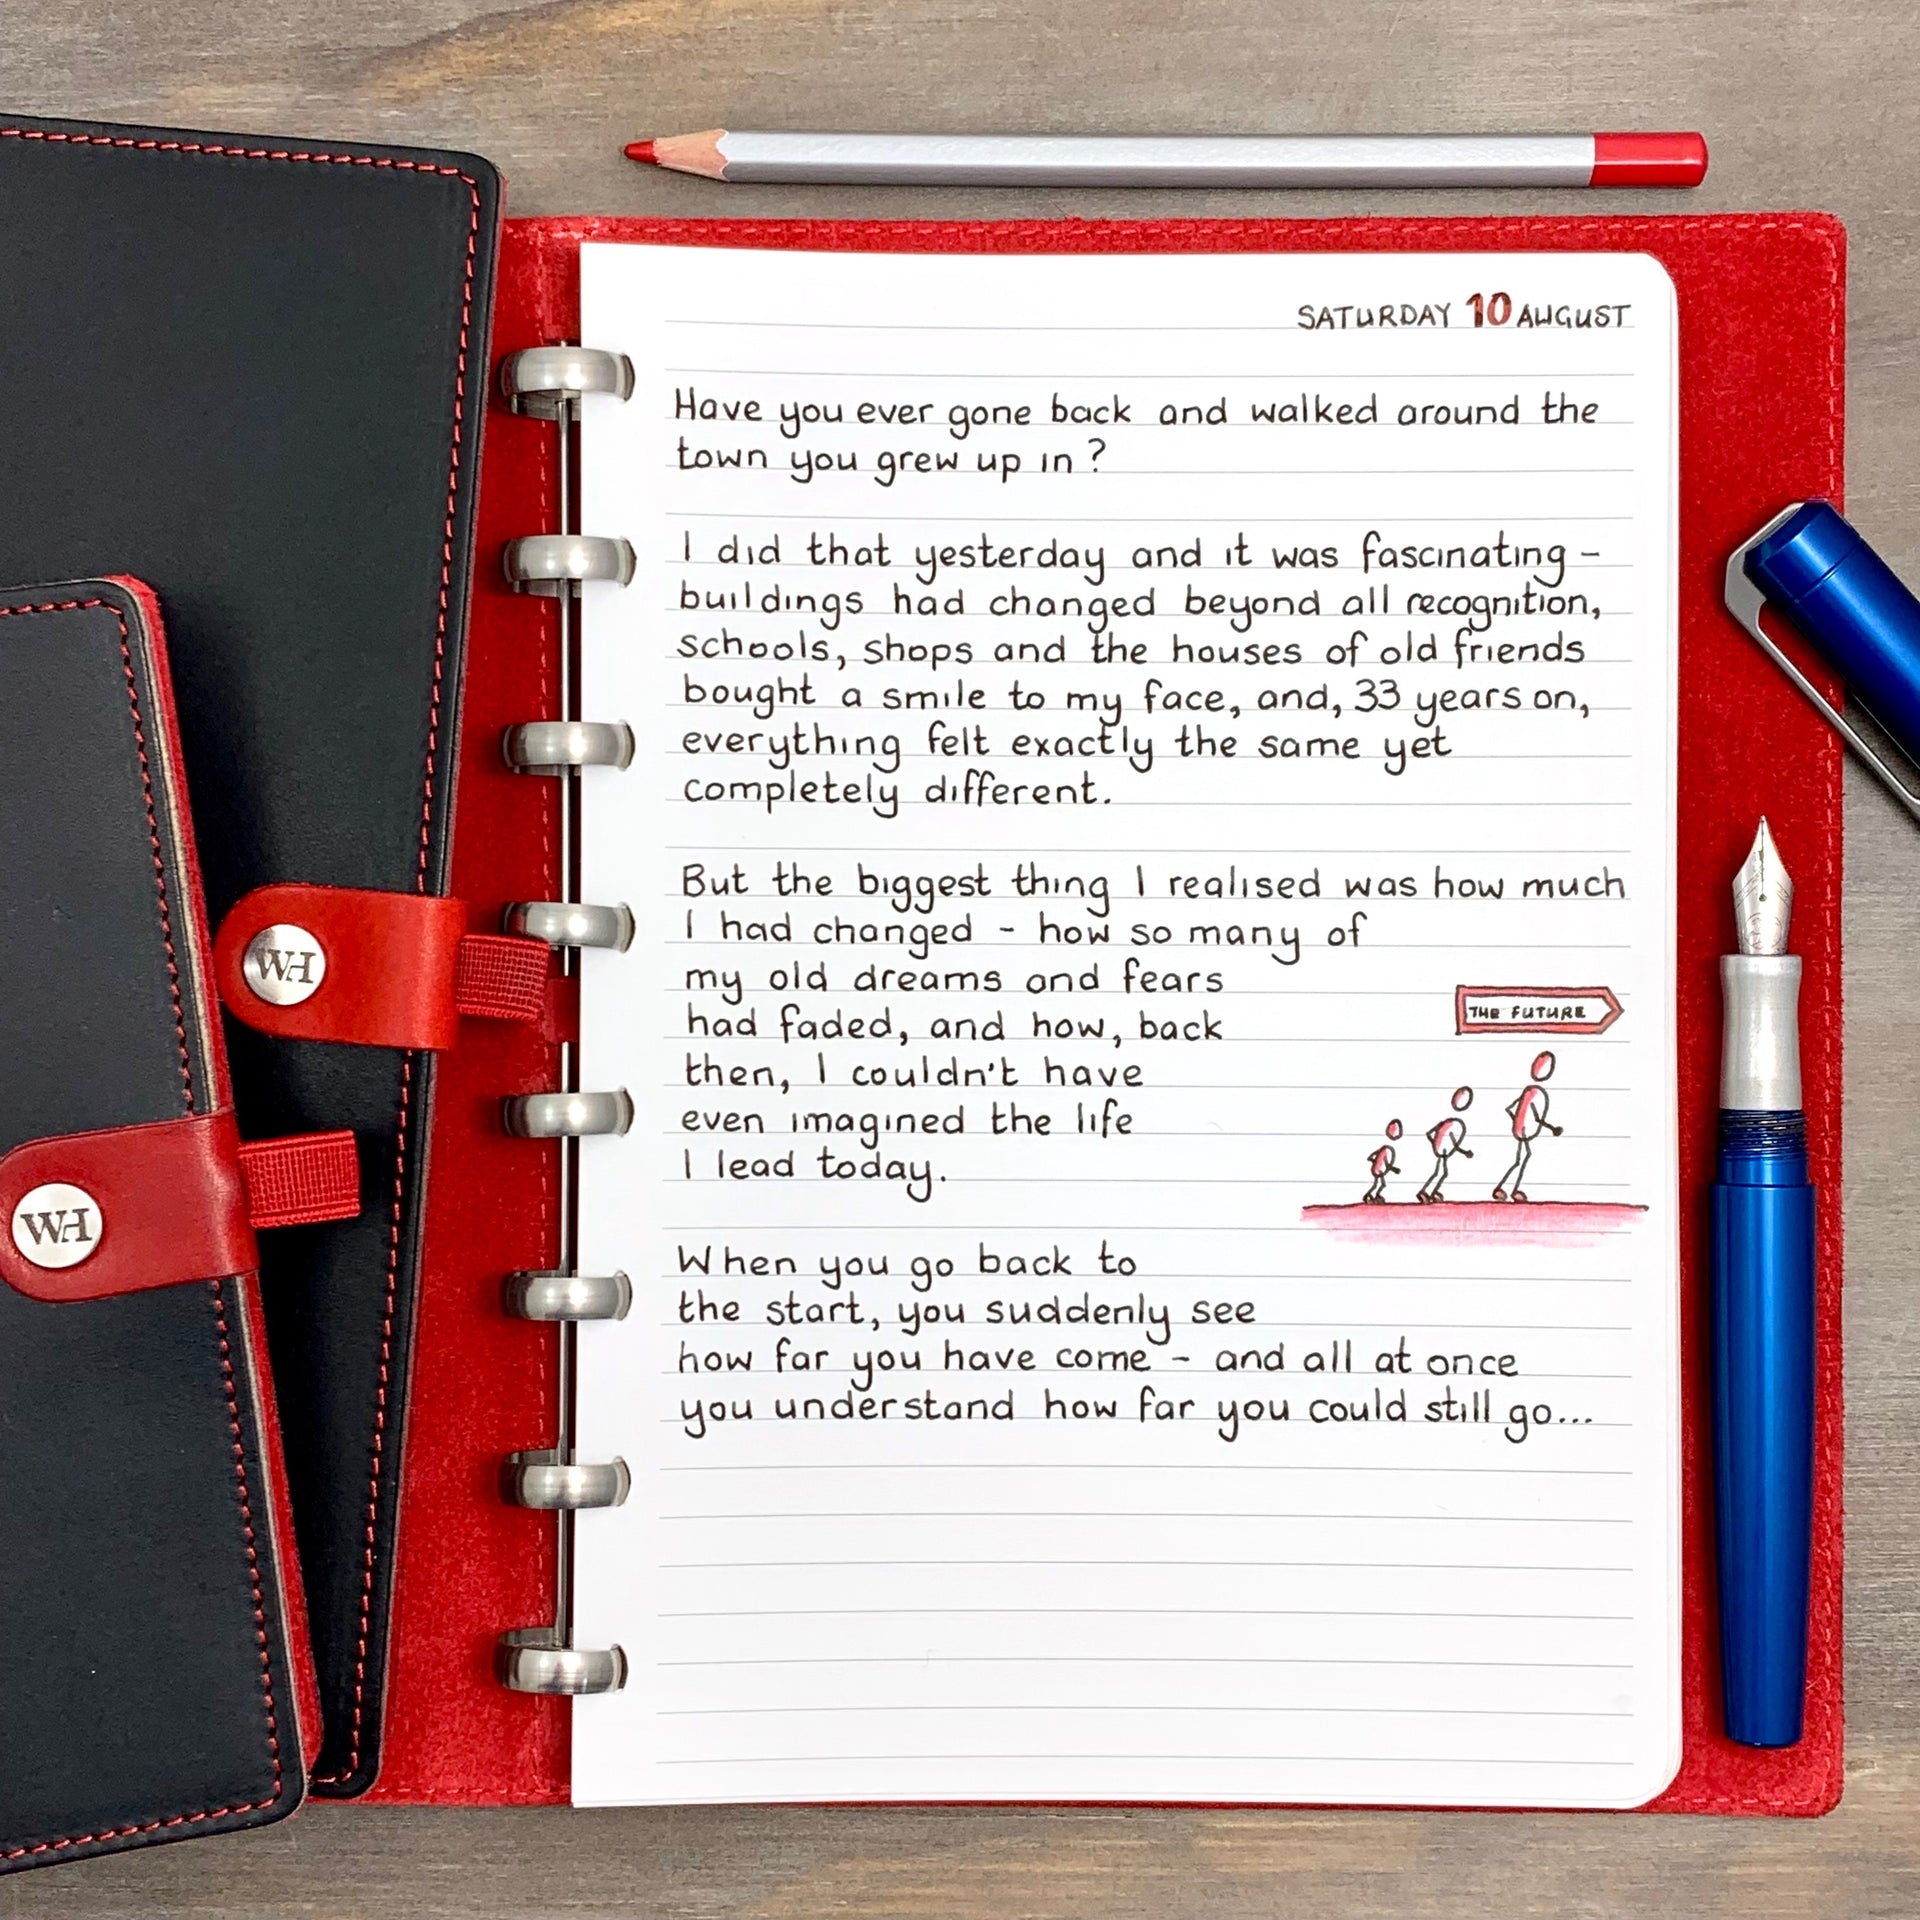 SATURDAY 10 AUGUST
Have you ever gone back and walked around the
town you grew up in?
I did that yesterday and it was fascinating -
buildings had changed beyond all recognition,
schools, shops and the houses of old friends
bought a smile to my face, and, 33 years on,
everything felt exactly the same yet
completely different.
But the biggest thing I realised was how much
I had changed - how so many of
my old dreams and fears
had faded, and how, back
then, I couldn't have
even imagined the life
I lead today.
THE FUTURE
When you go back to
the start, you suddenly see
how far you have come - and all at once
you understand how far you could still go...
WH
WH